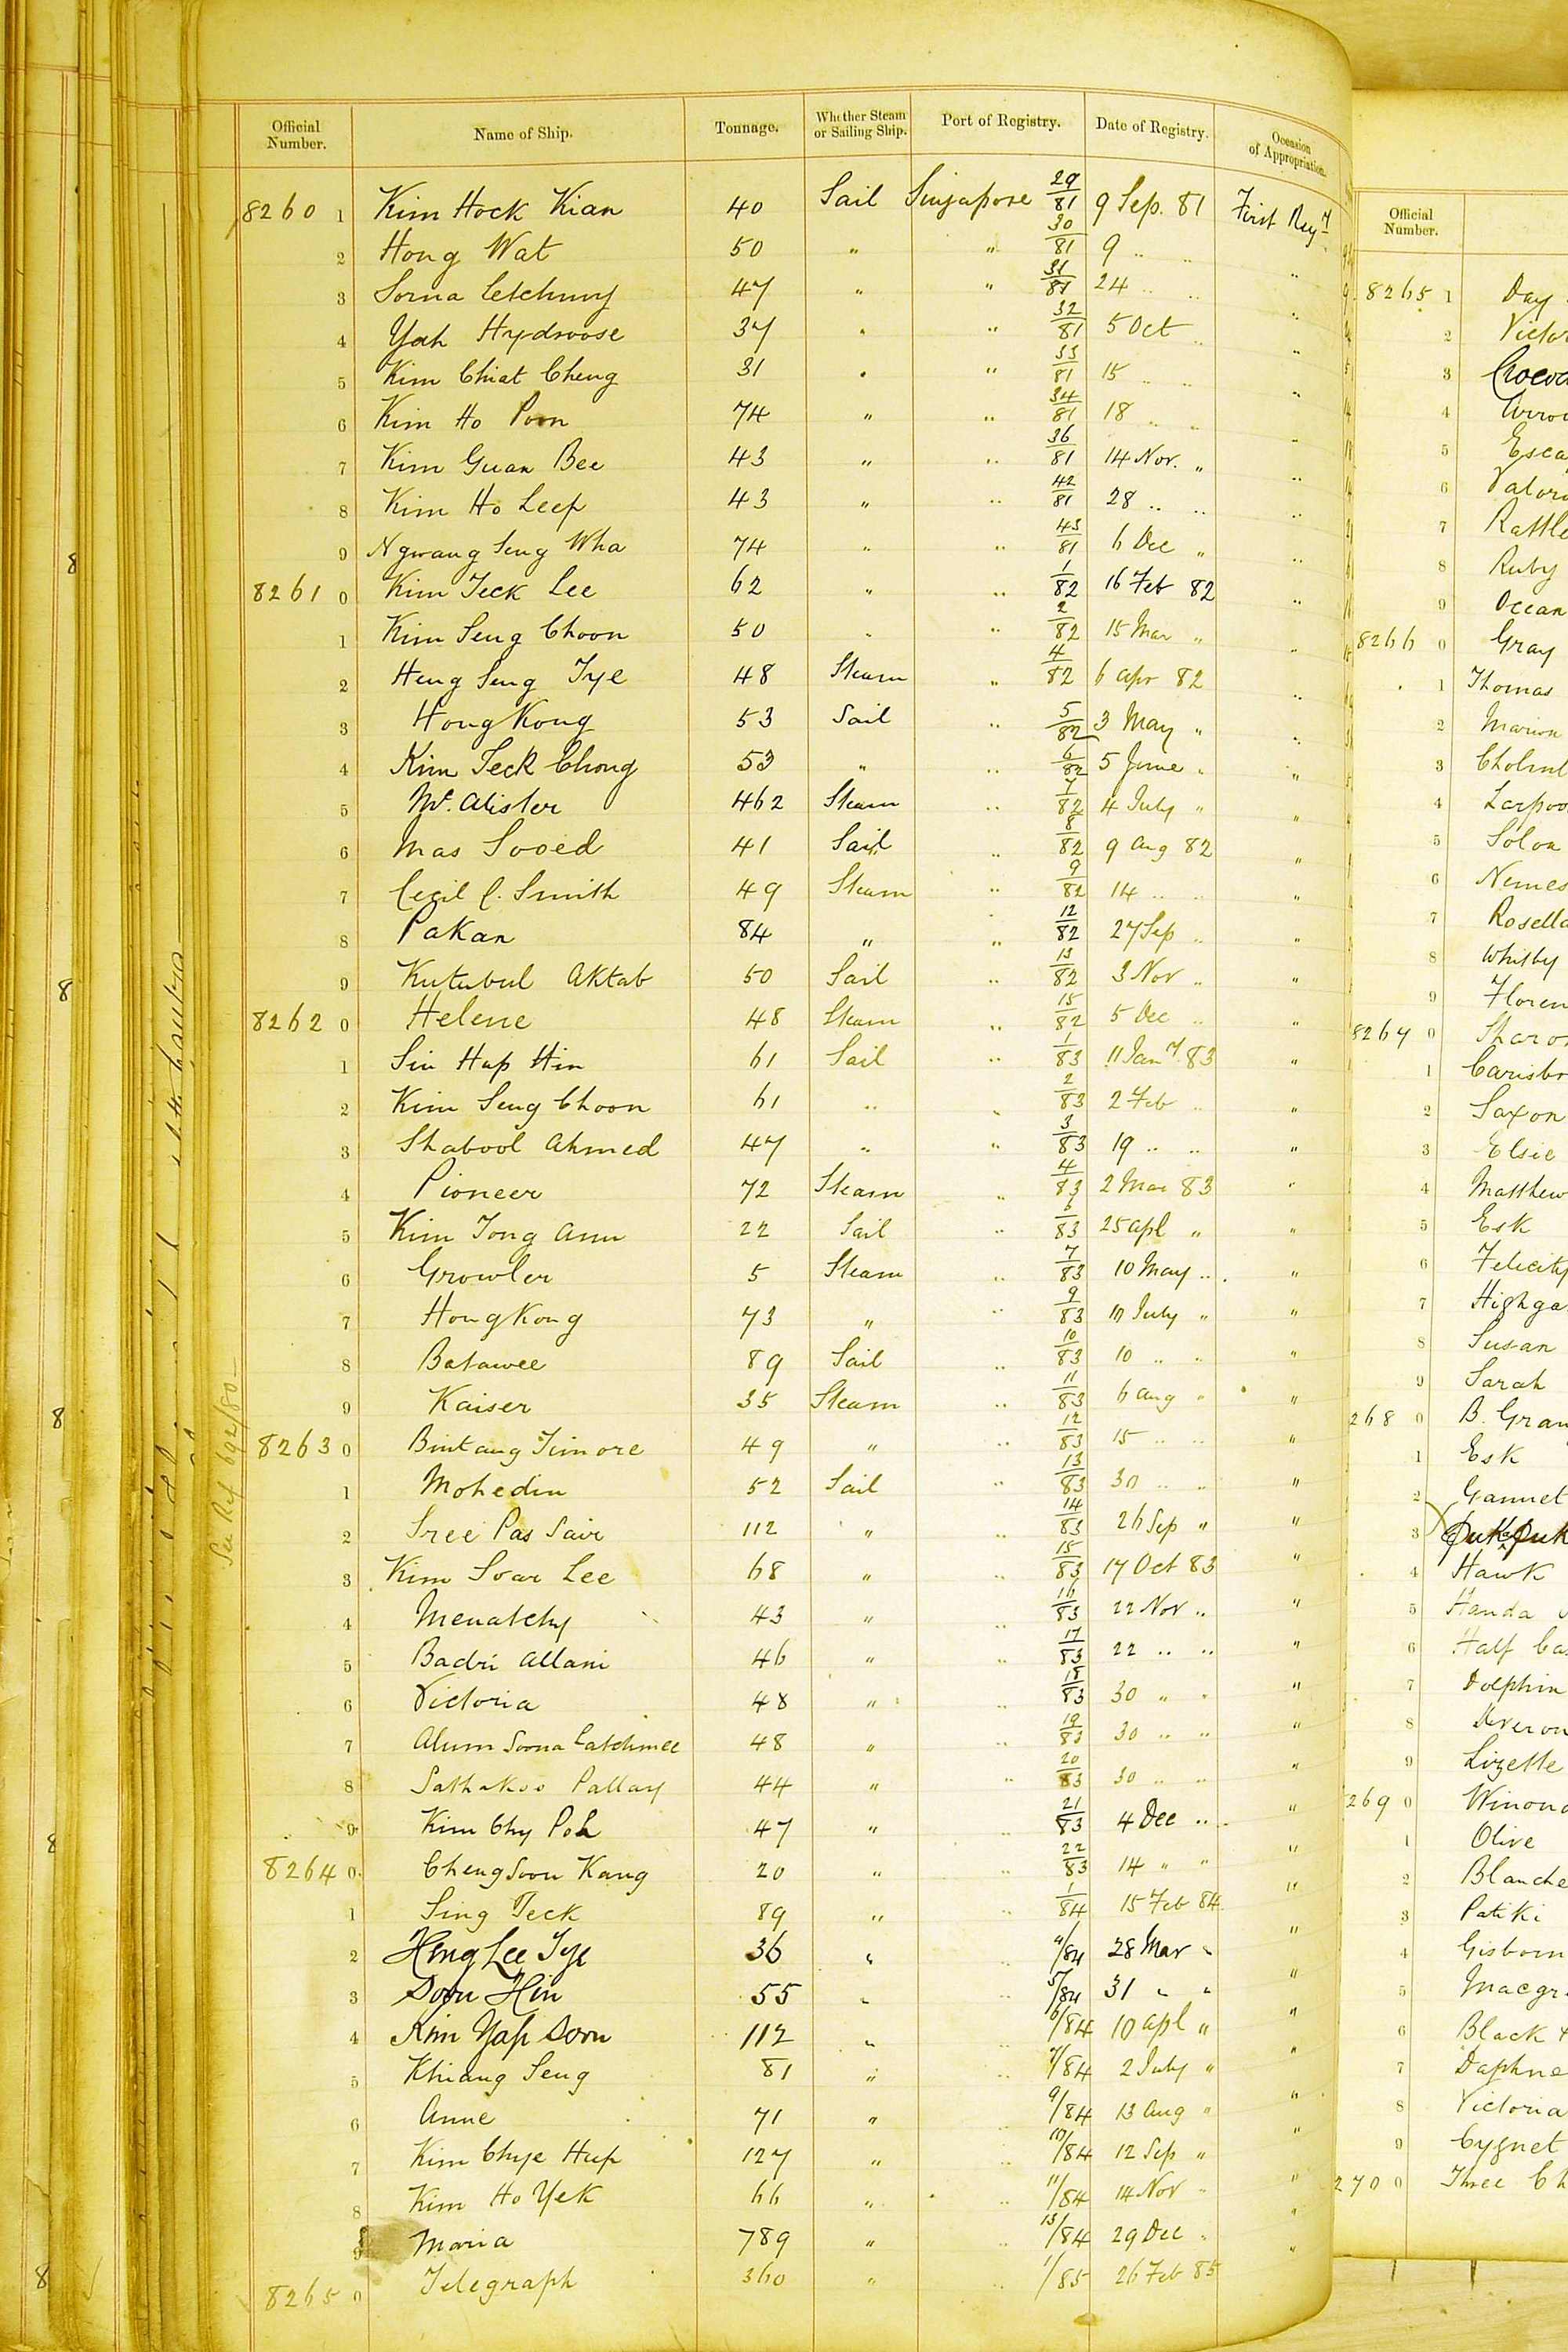 Official Number. Name of Ship. Tonnage. Whether Steam or Sailing Ship. Port of Registry. Date of Registry. Occasion of Appropriation.
8260 1 Kim Hock Kian 40 Sail Singapore 29/81 9 Sep. 81 First Regy
2 Hong Wat 50 " " 30/81 9 " "
3 Sorna Letchumy 47 " " 31/81 24 " " "
4 Yah Hydroose 37 " " 32/81 5 Oct " "
5 Kim Chiat Cheng 31 " " 33/81 15 " " "
6 Kim Ho Poon 74 " " 34/81 18 " " "
7 Kim Guan Bee 43 " " 36/81 14 Nov. " "
8 Kim Ho Leep 43 " " 42/81 28 " " "
9 Ngwang Seng Wha 74 " " 43/81 6 Dec " "
8261 0 Kim Teck Lee 62 " " 1/82 16 Feb 82 "
1 Kim Seng Choon 50 " " 2/82 15 Mar " "
2 Heng Seng Tye 48 Steam " 4/82 6 Apr 82 "
3 HongKong 53 Sail " 5/82 3 May " "
4 Kim Teck Chong 53 " " 6/82 5 June " "
5 Mc. Alister 462 Steam " 7/82 4 July " "
6 Mas Sooed 41 Sail " 8/82 9 Aug 82 "
7 Cecil C. Smith 49 Steam " 9/82 14 " " "
8 Pakan 84 " " 12/82 27 Sep " "
9 Kutubul Aktab 50 Sail " 13/82 3 Nov " "
8262 0 Helene 48 Steam " 15/82 5 Dec " "
1 Sin Hap Hin 61 Sail " 1/83 11 Jany 83 "
2 Kim Seng Choon 61 " " 2/83 2 Feb " "
3 Shabool Ahmed 47 " " 3/83 19 " " "
4 Pioneer 72 Steam " 4/83 2 Mar 83 "
5 Kim Tong Ann 22 Sail " /83 25 Apl " "
6 Growler 5 Steam " 7/83 10 May " "
7 HongKong 73 " " 9/83 10 July " "
8 Batawee 89 Sail " 10/83 10 " " "
9 Kaiser 35 Steam " 11/83 6 Aug " "
8263 0 Bintang Timore 49 " " 12/83 15 " " "
1 Mohedin 52 Sail " 13/83 30 " " "
2 Sree Pas Sair 112 " " 14/83 26 Sep " "
3 Kim Soar Lee 68 " " 15/83 17 Oct 83 "
4 Menatchy 43 " " 16/83 22 Nov " "
5 Badri Allani 46 " " 17/83 22 " " "
6 Victoria 48 " " 18/83 30 " " "
7 Alum Soona Latchmee 48 " " 19/83 30 " " "
8 Sathakoo Pallay 44 " " 20/83 30 " " "
9 Kim Chy Poh 47 " " 21/83 4 Dec " "
8264 0 Cheng Soon Kang 20 " " 22/83 14 " " "
1 Sing Teck 89 " " 1/84 15 Feb 84 "
2 Heng Lee Tye 36 " " 4/84 28 Mar " "
3 Soon Hin 55 " " 5/84 31 " " "
4 Kim Yap Soon 112 " " 6/84 10 Apl " "
5 Khiang Seng 81 " " 7/84 2 July " "
6 Anne 71 " " 9/84 13 Aug " "
7 Kim Chye Hup 127 " " 10/84 12 Sep " "
8 Kim Ho Yek 66 " " 11/84 14 Nov " "
9 Maria 789 " " 13/84 29 Dec " "
8265 0 Telegraph 360 " " 1/85 26 Feb 85
See Ref 692/80
Official Number.
8265 1 Day
2 Victor
3
4
5 Esca
6 Valor
7 Rattle
8 Ruby
9 Ocean
8266 0 Gray
1 Thomas
2 Marion
3 Cholml
4 Larpoo
5 Solon
6 Nemes
7 Rosella
8 Whitby
9 Floren
8267 0 Sharon
1 Carisbr
2 Saxon
3 Elsie
4 Matthew
5 Esk
6 Felicity
7 Highga
8 Susan
9 Sarah
268 0 B. Gran
1 Esk
2 Gannet
3
4 Hawk
5 Handa
6 Half Cas
7 Dolphin
8 Deveron
9 Lizette
269 0 Winona
1 Olive
2 Blanche
3 Patiki
4 Gisborn
5 Macgr
6 Black
7 Daphne
8 Victoria
9 Cygnet
270 0 Three Ch